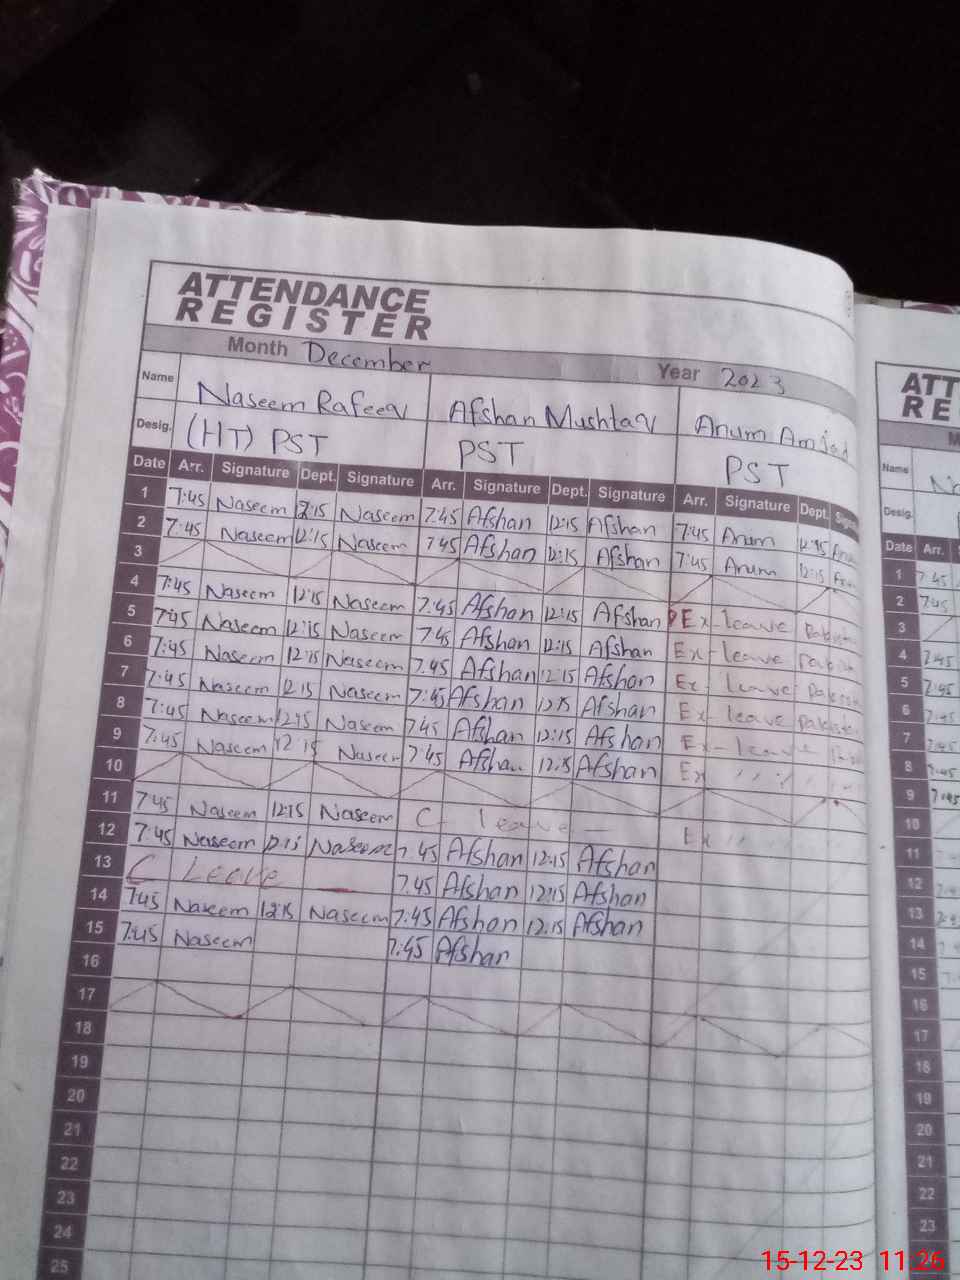 ATTENDANCE
REGISTER
Month December Year 2023
Name Naseem Rafeeq Afshan Mushtaq Anum Amjad
Desig. (HT) PST PST PST
Date Arr. Signature Dept. Signature Arr. Signature Dept. Signature Arr. Signature Dept.
1 7:45 Naseem 12:15 Naseem 7:45 Afshan 12:15 Afshan 7:45 Anum
2 7:45 Naseem 12:15 Naseem 7:45 Afshan 12:15 Afshan 7:45 Anum 12:15
3
4 7:45 Naseem 12:15 Naseem 7:45 Afshan 12:15 Afshan Ex-leave
5 7:45 Naseem 12:15 Naseem 7:45 Afshan 12:15 Afshan Ex-leave
6 7:45 Naseem 12:15 Naseem 7:45 Afshan 12:15 Afshan Ex-leave
7 7:45 Naseem 12:15 Naseem 7:45 Afshan 12:15 Afshan Ex-leave
8 7:45 Naseem 12:15 Naseem 7:45 Afshan 12:15 Afshan Ex-leave
9 7:45 Naseem 12:15 Naseem 7:45 Afshan 12:15 Afshan Ex " "
10
11 7:45 Naseem 12:15 Naseem C leave Ex "
12 7:45 Naseem 12:15 Naseem 7:45 Afshan 12:15 Afshan
13 C Leave 7:45 Afshan 12:15 Afshan
14 7:45 Naseem 12:15 Naseem 7:45 Afshan 12:15 Afshan
15 7:45 Naseem 7:45 Afshan
16
17
18
19
20
21
22
23
24
25
ATT
RE
Name
Desig.
Date Arr.
1 7:45
2 7:45
3
4 7:45
5 7:45
6 7:45
7 7:45
8 7:45
9 7:45
10
11
12
13
14
15
16
17
18
19
20
21
22
23
15-12-23 11:26